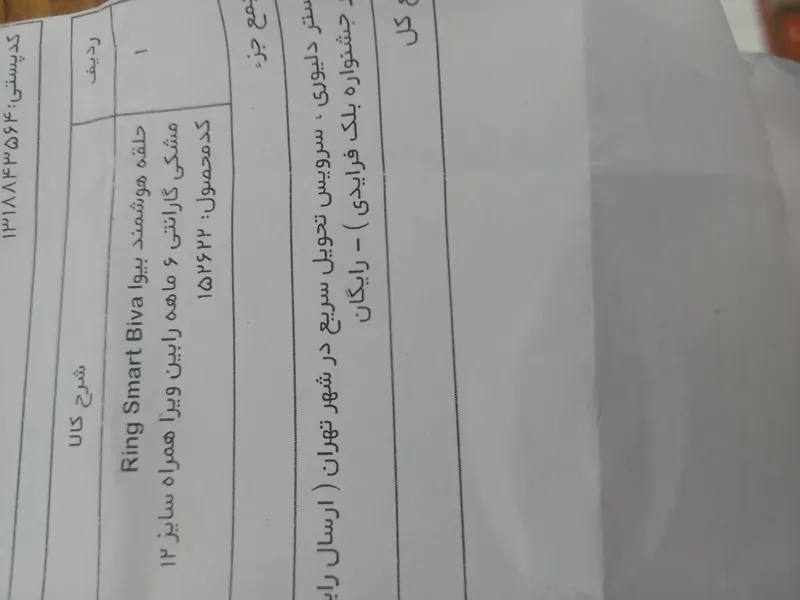 کدپستی: ۱۳۱۸۸۴۳۵۶۴
ردیف
شرح کالا
۱
حلقه هوشمند بیوا Ring Smart Biva
مشکی گارانتی ۶ ماهه رابین ویزا همراه سایز ۱۲
کدمحصول: ۱۵۲۶۲۲
جمع جزء
دلیوری ، سرویس تحویل سریع در شهر تهران ( ارسال
جشنواره بلک فرایدی ) - رایگان
کل